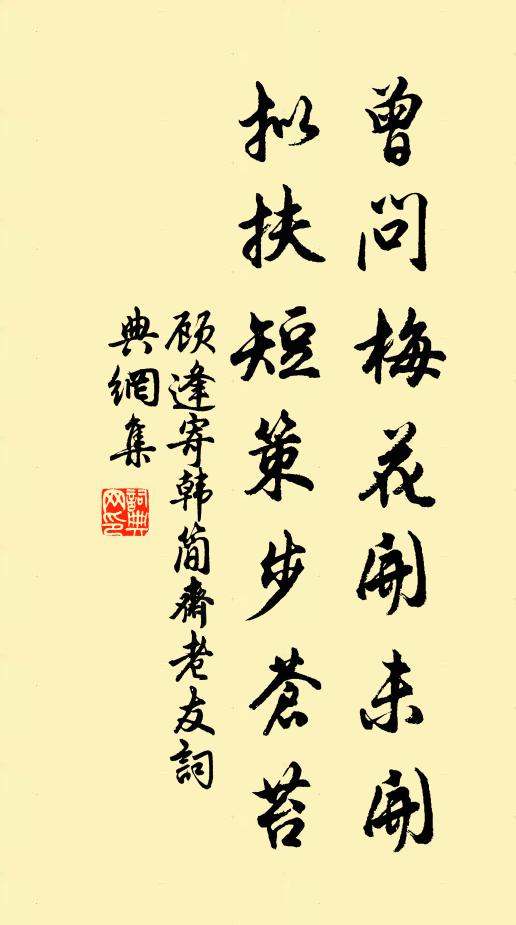 曾问梅花開未開
拟扶短策步蒼苔
顾逢寄韩简齋老友詞
典網集
詞典网印